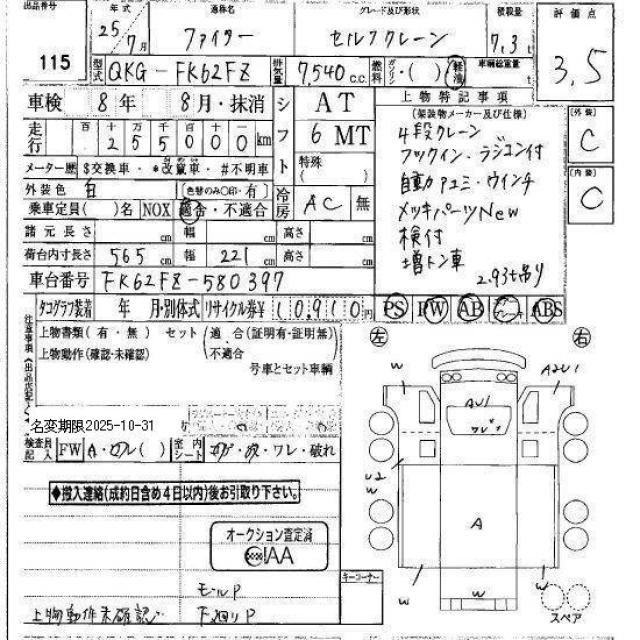 出品番号 115
年式 25/7月
通称名 ファイター
グレード及び形状 セルフクレーン
積載量 7.3t
評価点 3.5
型式 QKG-FK62FZ
排気量 7,540 C.C.
燃料 ガソリン・( )・軽油
車輌総重量 t
車検 8年 8月・抹消
シフト AT
6 MT
特殊( )
走行 百十万千百十一
255000km
メーター歴 $交換車・*改竄車・#不明車
外装色 白 (色替のみ○印・有)
冷房 AC 無
乗車定員( )名 NOX 適合・不適合
諸元長さ cm 幅 cm 高さ cm
荷台内寸長さ 565cm 幅 221cm 高さ cm
車台番号 FK62FZ-580397
上物特記事項
(架装物メーカー及び仕様)
4段クレーン
フックイン・ラジコン付
自動アユミ・ウインチ
メッキパーツNew
検付
増トン車
2.93t吊り
〔外装〕 C
〔内装〕 C
タコグラフ装着 年 月・別体式
リサイクル券¥ 10,910円
PS PW AB ABS
注意事項
上物書類(有・無) セット(適合(証明有・証明無)
不適合
上物動作(確認・未確認)
号車とセット車輌
名変期限2025-10-31
検査員記入 FW A・
室内シート ・ワレ・破れ
◆搬入連絡(成約日含め4日以内)後お引取り下さい。
オークション査定済
IAA
モールP
上物動作未確認 下廻りP
キーコーナー
左 右
W
A2U1
AU1
ワレ
U2
W
A
W
W
W
スペア